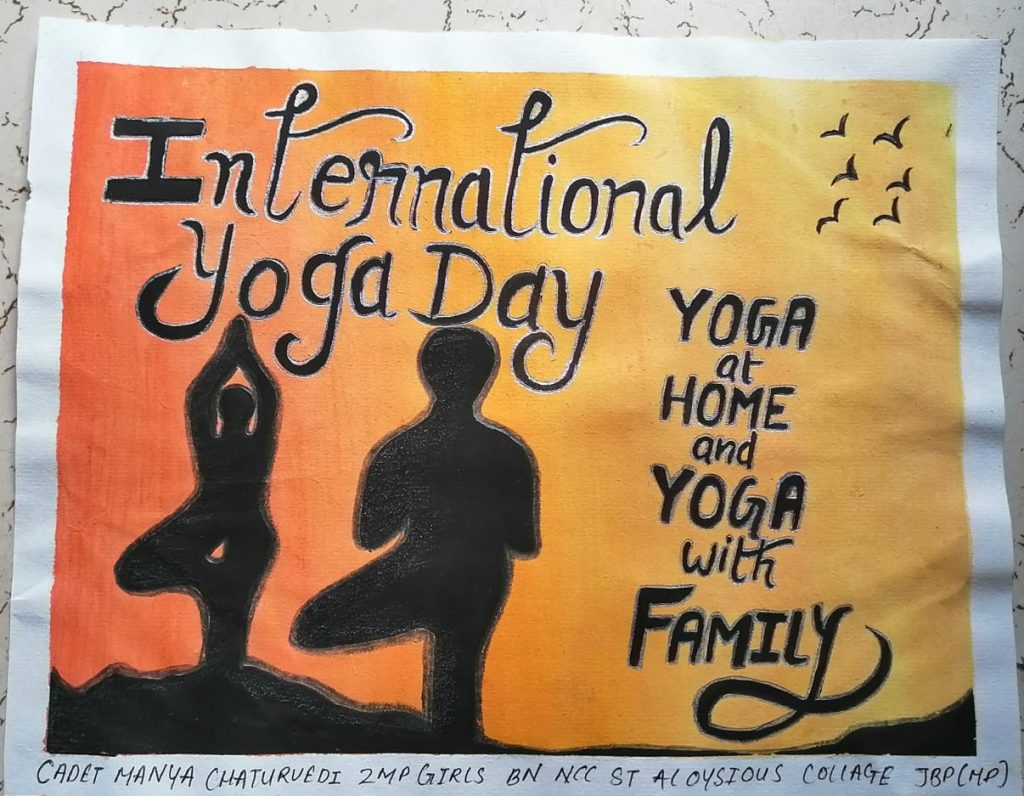 International
Yoga Day
YOGA
at
HOME
and
YOGA
with
FAMILY
CADET MANYA CHATURVEDI 2MP GIRLS BN NCC ST ALOYSIOUS COLLAGE JBP(MP)